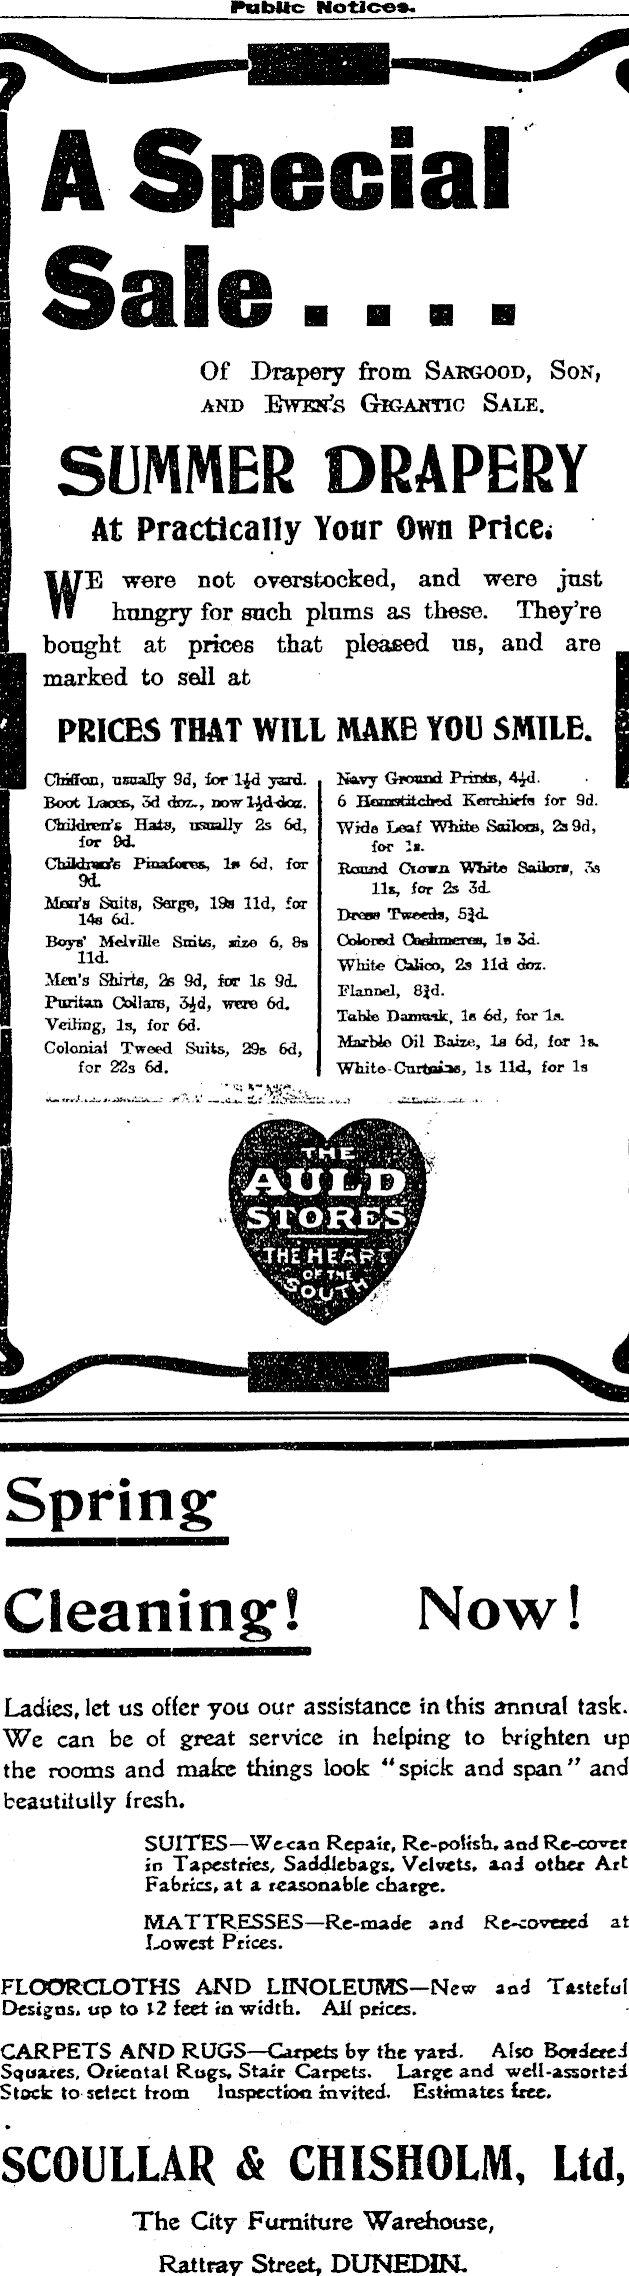 Public Notices.
A Special
Sale....
Of Drapery from SARGOOD, SON,
AND EWEN'S GIGANTIC SALE.
SUMMER DRAPERY
At Practically Your Own Price.
WE were not overstocked, and were just
hungry for such plums as these. They're
bought at prices that pleased us, and are
marked to sell at
PRICES THAT WILL MAKE YOU SMILE.
Chiffon, usually 9d, for 1½d yard.
Boot Laces, 3d doz., now 1½d doz.
Children's Hats, usually 2s 6d,
for 9d.
Children's Pinafores, 1s 6d, for
9d.
Men's Suits, Serge, 19s 11d, for
14s 6d.
Boys' Melville Suits, size 6, 8s
11d.
Men's Shirts, 2s 9d, for 1s 9d.
Puritan Collars, 3½d, were 6d.
Veiling, 1s, for 6d.
Colonial Tweed Suits, 29s 6d,
for 22s 6d.
Navy Ground Prints, 4½d.
6 Hemstitched Kerchiefs for 9d.
Wide Leaf White Sailors, 2s 9d,
for 1s.
Round Crown White Sailors, 3s
11s, for 2s 3d.
Dress Tweeds, 5¾d.
Colored Cashmeres, 1s 3d.
White Calico, 2s 11d doz.
Flannel, 8¾d.
Table Damask, 1s 6d, for 1s.
Marble Oil Baize, 1s 6d, for 1s.
White Curtains, 1s 11d, for 1s
THE
AULD
STORES
THE HEART
OF THE
SOUTH
Spring
Cleaning! Now!
Ladies, let us offer you our assistance in this annual task.
We can be of great service in helping to brighten up
the rooms and make things look "spick and span" and
beautifully fresh.
SUITES—We can Repair, Re-polish, and Re-cover
in Tapestries, Saddlebags, Velvets, and other Art
Fabrics, at a reasonable charge.
MATTRESSES—Re-made and Re-covered at
Lowest Prices.
FLOORCLOTHS AND LINOLEUMS—New and Tasteful
Designs, up to 12 feet in width. All prices.
CARPETS AND RUGS—Carpets by the yard. Also Bordered
Squares, Oriental Rugs, Stair Carpets. Large and well-assorted
Stock to select from Inspection invited. Estimates free.
SCOULLAR & CHISHOLM, Ltd,
The City Furniture Warehouse,
Rattray Street, DUNEDIN.